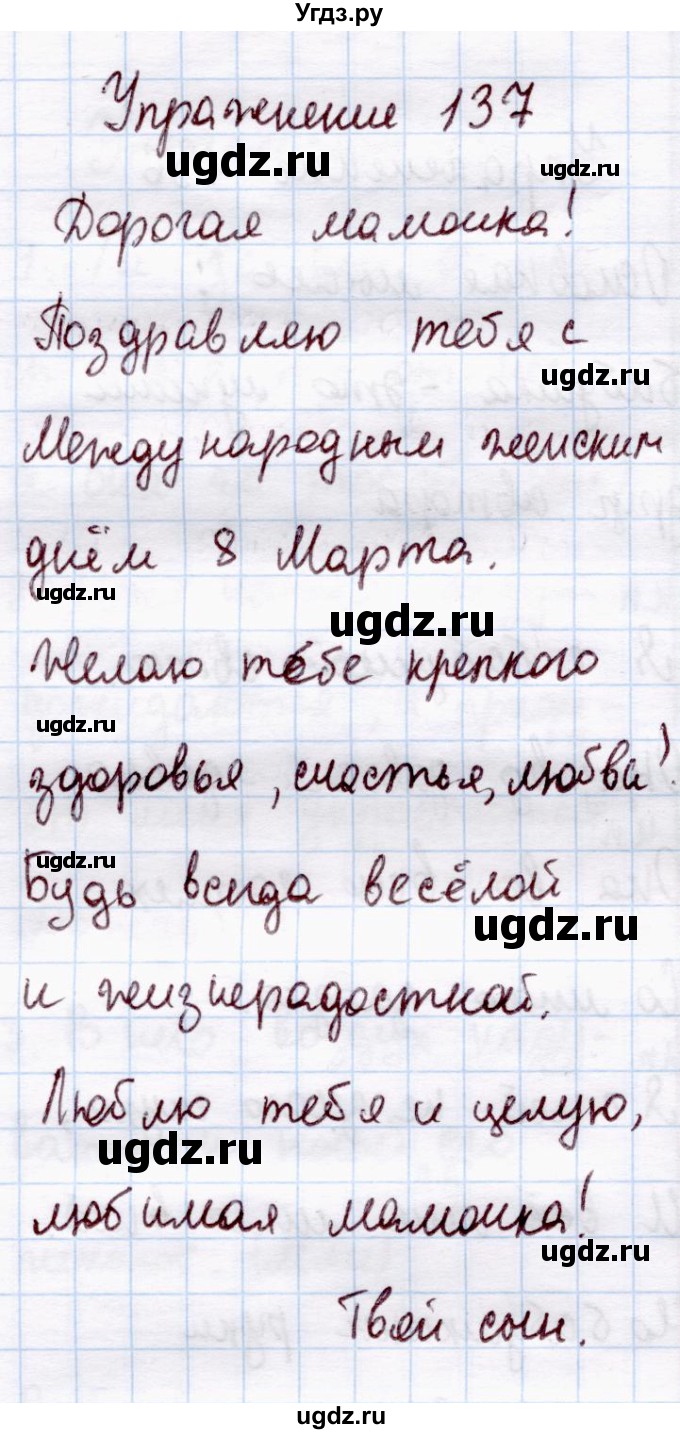 Угдз.ру
Упражнение 137
ugdz.ru ugdz.ru
Дорогая мамочка!
Поздравляю тебя с
ugdz.ru
Международным женским
днём 8 Марта.
ugdz.ru
ugdz.ru
Желаю тебе крепкого
ugdz.ru
здоровья, счастья, любви!
ugdz.ru
Будь всегда весёлой
ugdz.ru
и жизнерадостной.
Люблю тебя и целую,
ugdz.ru
любимая мамочка!
ugdz.ru
Твой сын.
ugdz.ru